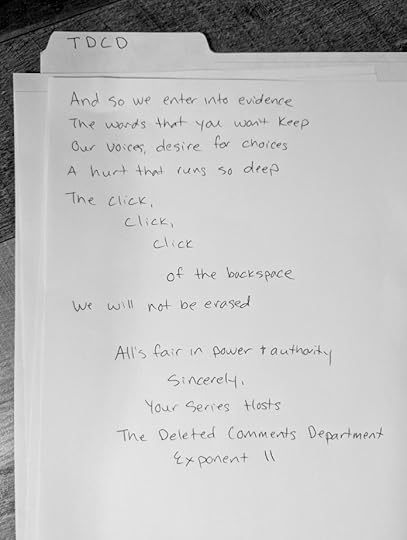 TDCD
And so we enter into evidence
The words that you won't keep
Our voices, desire for choices
A hurt that runs so deep
The click,
click,
click
of the backspace
We will not be erased
All's fair in power + authority
Sincerely,
Your Series Hosts
The Deleted Comments Department
Exponent II